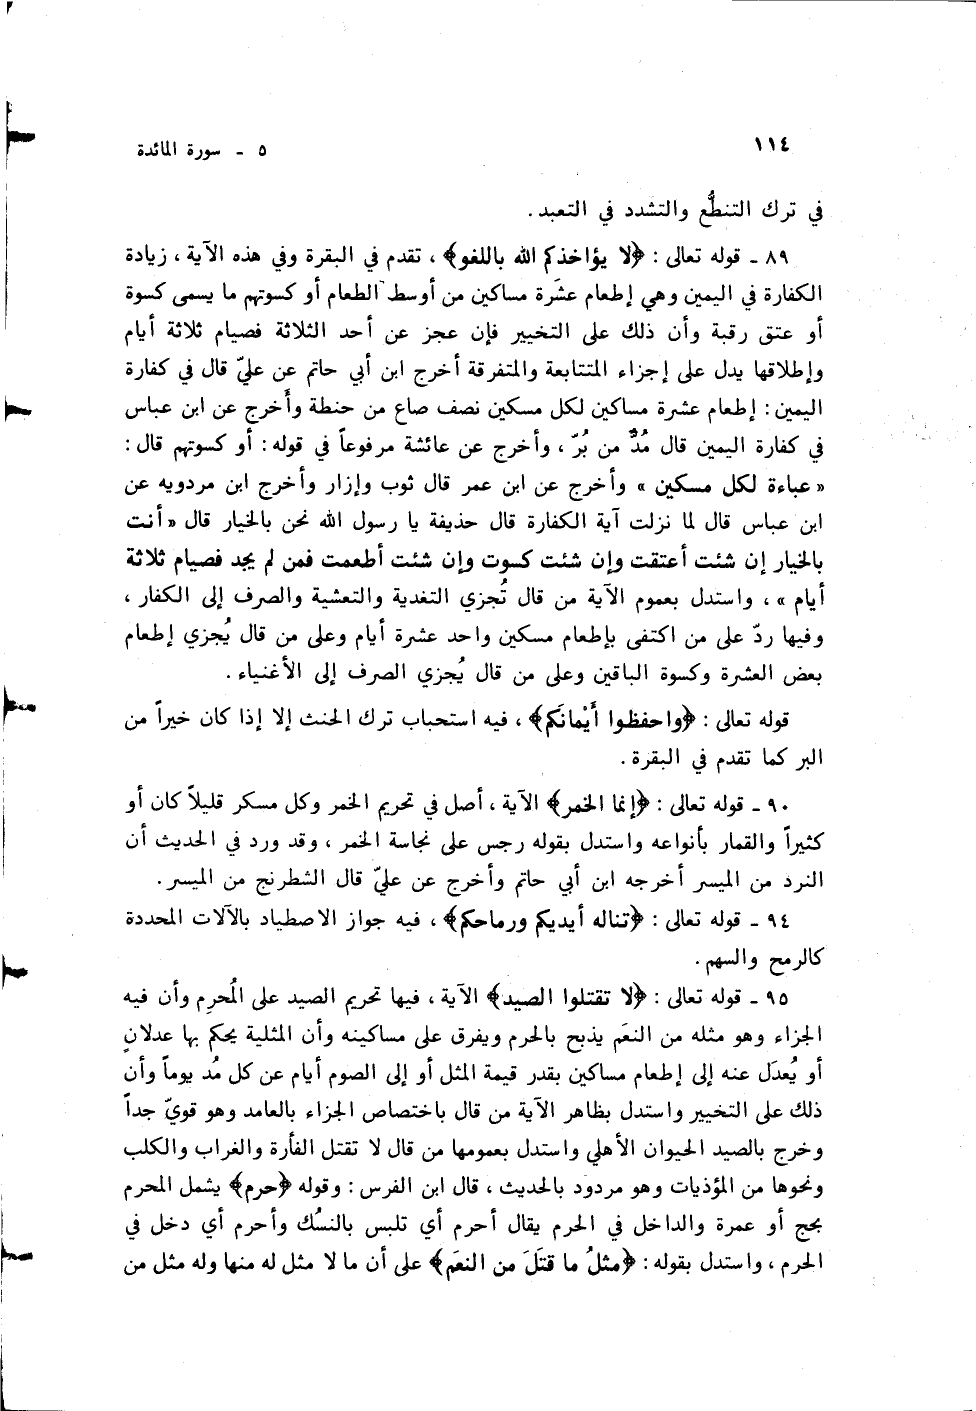 ١١٤
٥ - سورة المائدة
في ترك التنطُّع والتشدد في التعبد .
٨٩ - قوله تعالى : ﴿لا يؤاخذكم الله باللغو﴾ ، تقدم في البقرة وفي هذه الآية ، زيادة
الكفارة في اليمين وهي إطعام عشَرة مساكين من أوسط الطعام أو كسوتهم ما يسمى كسوة
أو عتق رقبة وأن ذلك على التخيير فإن عجز عن أحد الثلاثة فصيام ثلاثة أيام
وإطلاقها يدل على إجزاء المتتابعة والمتفرقة أخرج ابن أبي حاتم عن عليّ قال في كفارة
اليمين : إطعام عشرة مساكين لكل مسكين نصف صاع من حنطة وأخرج عن ابن عباس
في كفارة اليمين قال مُدٌّ من بُرّ ، وأخرج عن عائشة مرفوعاً في قوله : أو كسوتهم قال :
« عباءة لكل مسكين » وأخرج عن ابن عمر قال ثوب وإزار وأخرج ابن مردويه عن
ابن عباس قال لما نزلت آية الكفارة قال حذيفة يا رسول الله نحن بالخيار قال « أنت
بالخيار إن شئت أعتقت وإن شئت كسوت وإن شئت أطعمت فمن لم يجد فصيام ثلاثة
أيام » ، واستدل بعموم الآية من قال تُجزي التغدية والتعشية والصرف إلى الكفار ،
وفيها ردّ على من اكتفى بإطعام مسكين واحد عشرة أيام وعلى من قال يُجزي إطعام
بعض العشرة وكسوة الباقين وعلى من قال يُجزي الصرف إلى الأغنياء .
قوله تعالى : ﴿واحفظوا أَيْمانَكم﴾ ، فيه استحباب ترك الحنث إلا إذا كان خيراً من
البر كما تقدم في البقرة .
٩٠ - قوله تعالى : ﴿إنما الخمر﴾ الآية ، أصل في تحريم الخمر وكل مسكر قليلاً كان أو
كثيراً والقمار بأنواعه واستدل بقوله رجس على نجاسة الخمر ، وقد ورد في الحديث أن
النرد من الميسر أخرجه ابن أبي حاتم وأخرج عن عليّ قال الشطرنج من الميسر .
٩٤ - قوله تعالى : ﴿تناله أيديكم ورماحكم﴾ ، فيه جواز الاصطياد بالآلات المحددة
كالرمح والسهم .
٩٥ - قوله تعالى : ﴿لا تقتلوا الصيد﴾ الآية ، فيها تحريم الصيد على المُحرِم وأن فيه
الجزاء وهو مثله من النعَم يذبح بالحرم ويفرق على مساكينه وأن المثلية يحكم بها عدلانِ
أو يُعدَل عنه إلى إطعام مساكين بقدر قيمة المثل أو إلى الصوم أيام عن كل مُد يوماً وأن
ذلك على التخيير واستدل بظاهر الآية من قال باختصاص الجزاء بالعامد وهو قويّ جداً
وخرج بالصيد الحيوان الأهلي واستدل بعمومها من قال لا تقتل الفأرة والغراب والكلب
ونحوها من المؤذيات وهو مردود بالحديث ، قال ابن الفرس : وقوله ﴿حرم﴾ يشمل المحرم
بحج أو عمرة والداخل في الحرم يقال أحرم أي تلبس بالنسُك وأحرم أي دخل في
الحرم ، واستدل بقوله : ﴿مثلُ ما قتَلَ من النعَم﴾ على أن ما لا مثل له منها وله مثل من